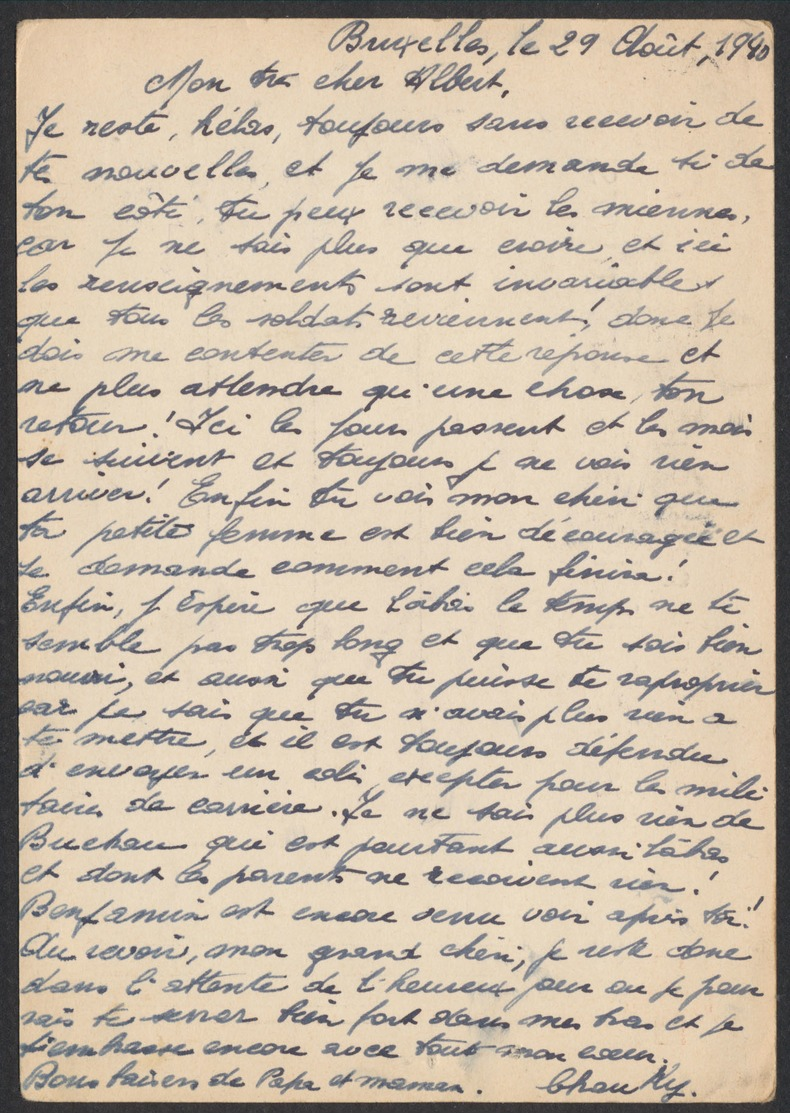 Bruxelles, le 29 Août, 1940
Mon très cher Albert,
Je reste, hélas, toujours sans recevoir de
tes nouvelles, et je me demande si de
ton côté, tu peux recevoir les miennes,
car je ne sais plus que croire, et ici
les renseignements sont invariables
que tous les soldats reviennent! donc je
dois me contenter de cette réponse et
ne plus attendre qu'une chose, ton
retour! Ici les jours passent et les mois
se suivent et toujours je ne vois rien
arriver! Enfin tu vois mon chéri que
ta petite femme est bien découragée et
se demande comment cela finira!
Enfin, j'espère que làbas le temps ne te
semble pas trop long et que tu sois bien
nourri, et aussi que tu puisse te
car je sais que tu n'avais plus rien a
te mettre, et il est toujours défendu
d'envoyer un colis, excepter pour les mili
taires de carrière. Je ne sais plus rien de
qui est pourtant aussi làbas
et dont les parents ne recoivent rien!
Benjamin est encore venu voir après toi!
Au revoir, mon grand chéri, je reste donc
dans l'attente de l'heureux jour ou je pour
rais te serrer bien fort dans mes bras et je
t'embrasse encore avec tout mon cœur.
Bons baisers de Papa et maman.